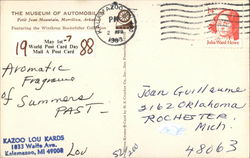 THE MUSEUM OF AUTOMOBILES
Petit Jean Mountain, Morrilton, Arkansas
Featuring the Winthrop Rockefeller Collection
KALAMAZOO
PM
2
1988
May 1st-7
19 World Post Card Day 88
Mail A Post Card
Julia Ward Howe
Aromatic
Fragrance
of Summers
PAST-
Joan Guillaume
3162 Oklahoma
ROCHESTER,
Mich.
48063
KAZOO LOU KARDS
1833 Waite Ave.
Kalamazoo, MI 49008
Lou
52/200